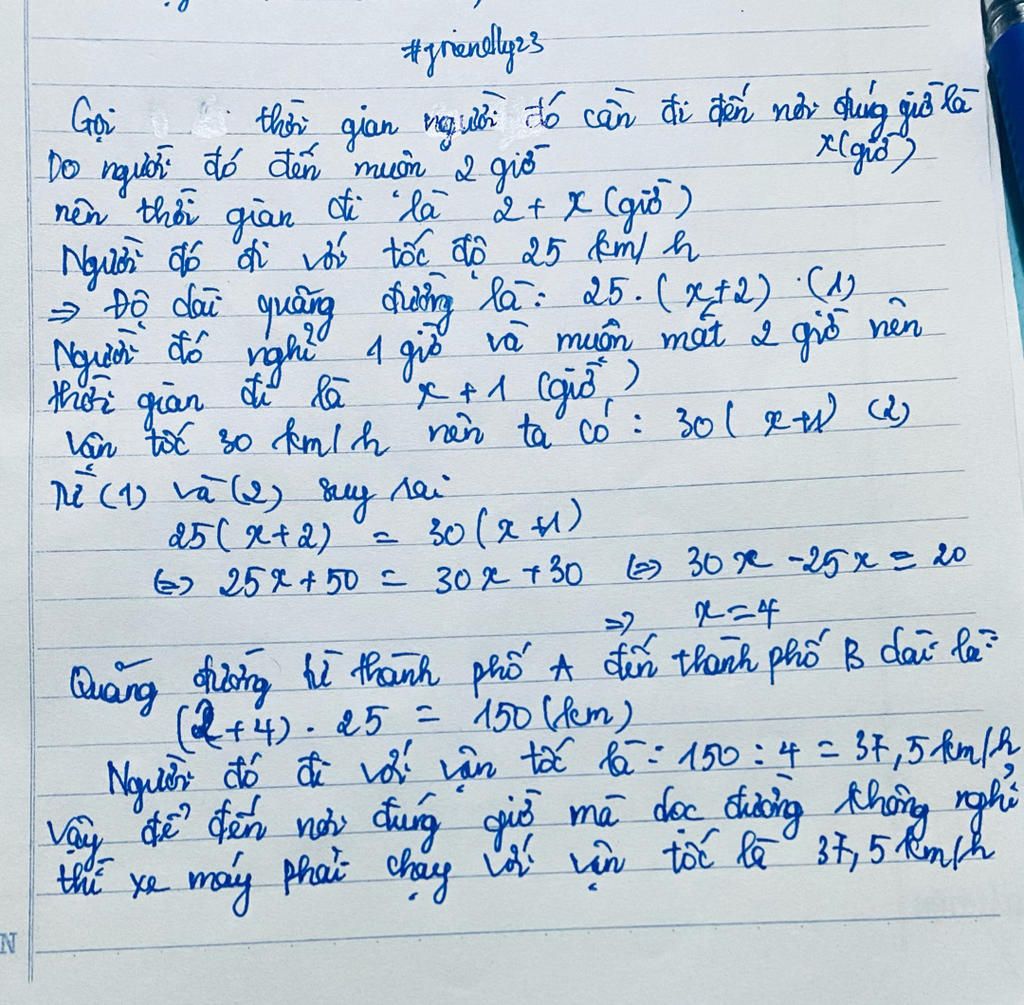 #friendlly23
Gọi thời gian người đó cần đi đến nơi đúng giờ là
x (giờ)
Do người đó đến muộn 2 giờ
nên thời gian đi là 2 + x (giờ)
Người đó đi với tốc độ 25 km/h
⇒ Độ dài quãng đường là: 25.(x+2) (1)
Người đó nghỉ 1 giờ và muộn mất 2 giờ nên
thời gian đi là x + 1 (giờ)
Vận tốc 30 km/h nên ta có: 30(x+1) (2)
Từ (1) và (2) suy rai
25(x+2) = 30(x+1)
⇔ 25x+50 = 30x+30 ⇔ 30x-25x = 20
⇒ x=4
Quãng đường từ thành phố A đến thành phố B dài là:
(2+4).25 = 150(km)
Người đó đi với vận tốc là: 150 : 4 = 37,5 km/h
Vậy để đến nơi đúng giờ mà dọc đường không nghỉ
thì xe máy phải chạy với vận tốc là 37,5 km/h
N